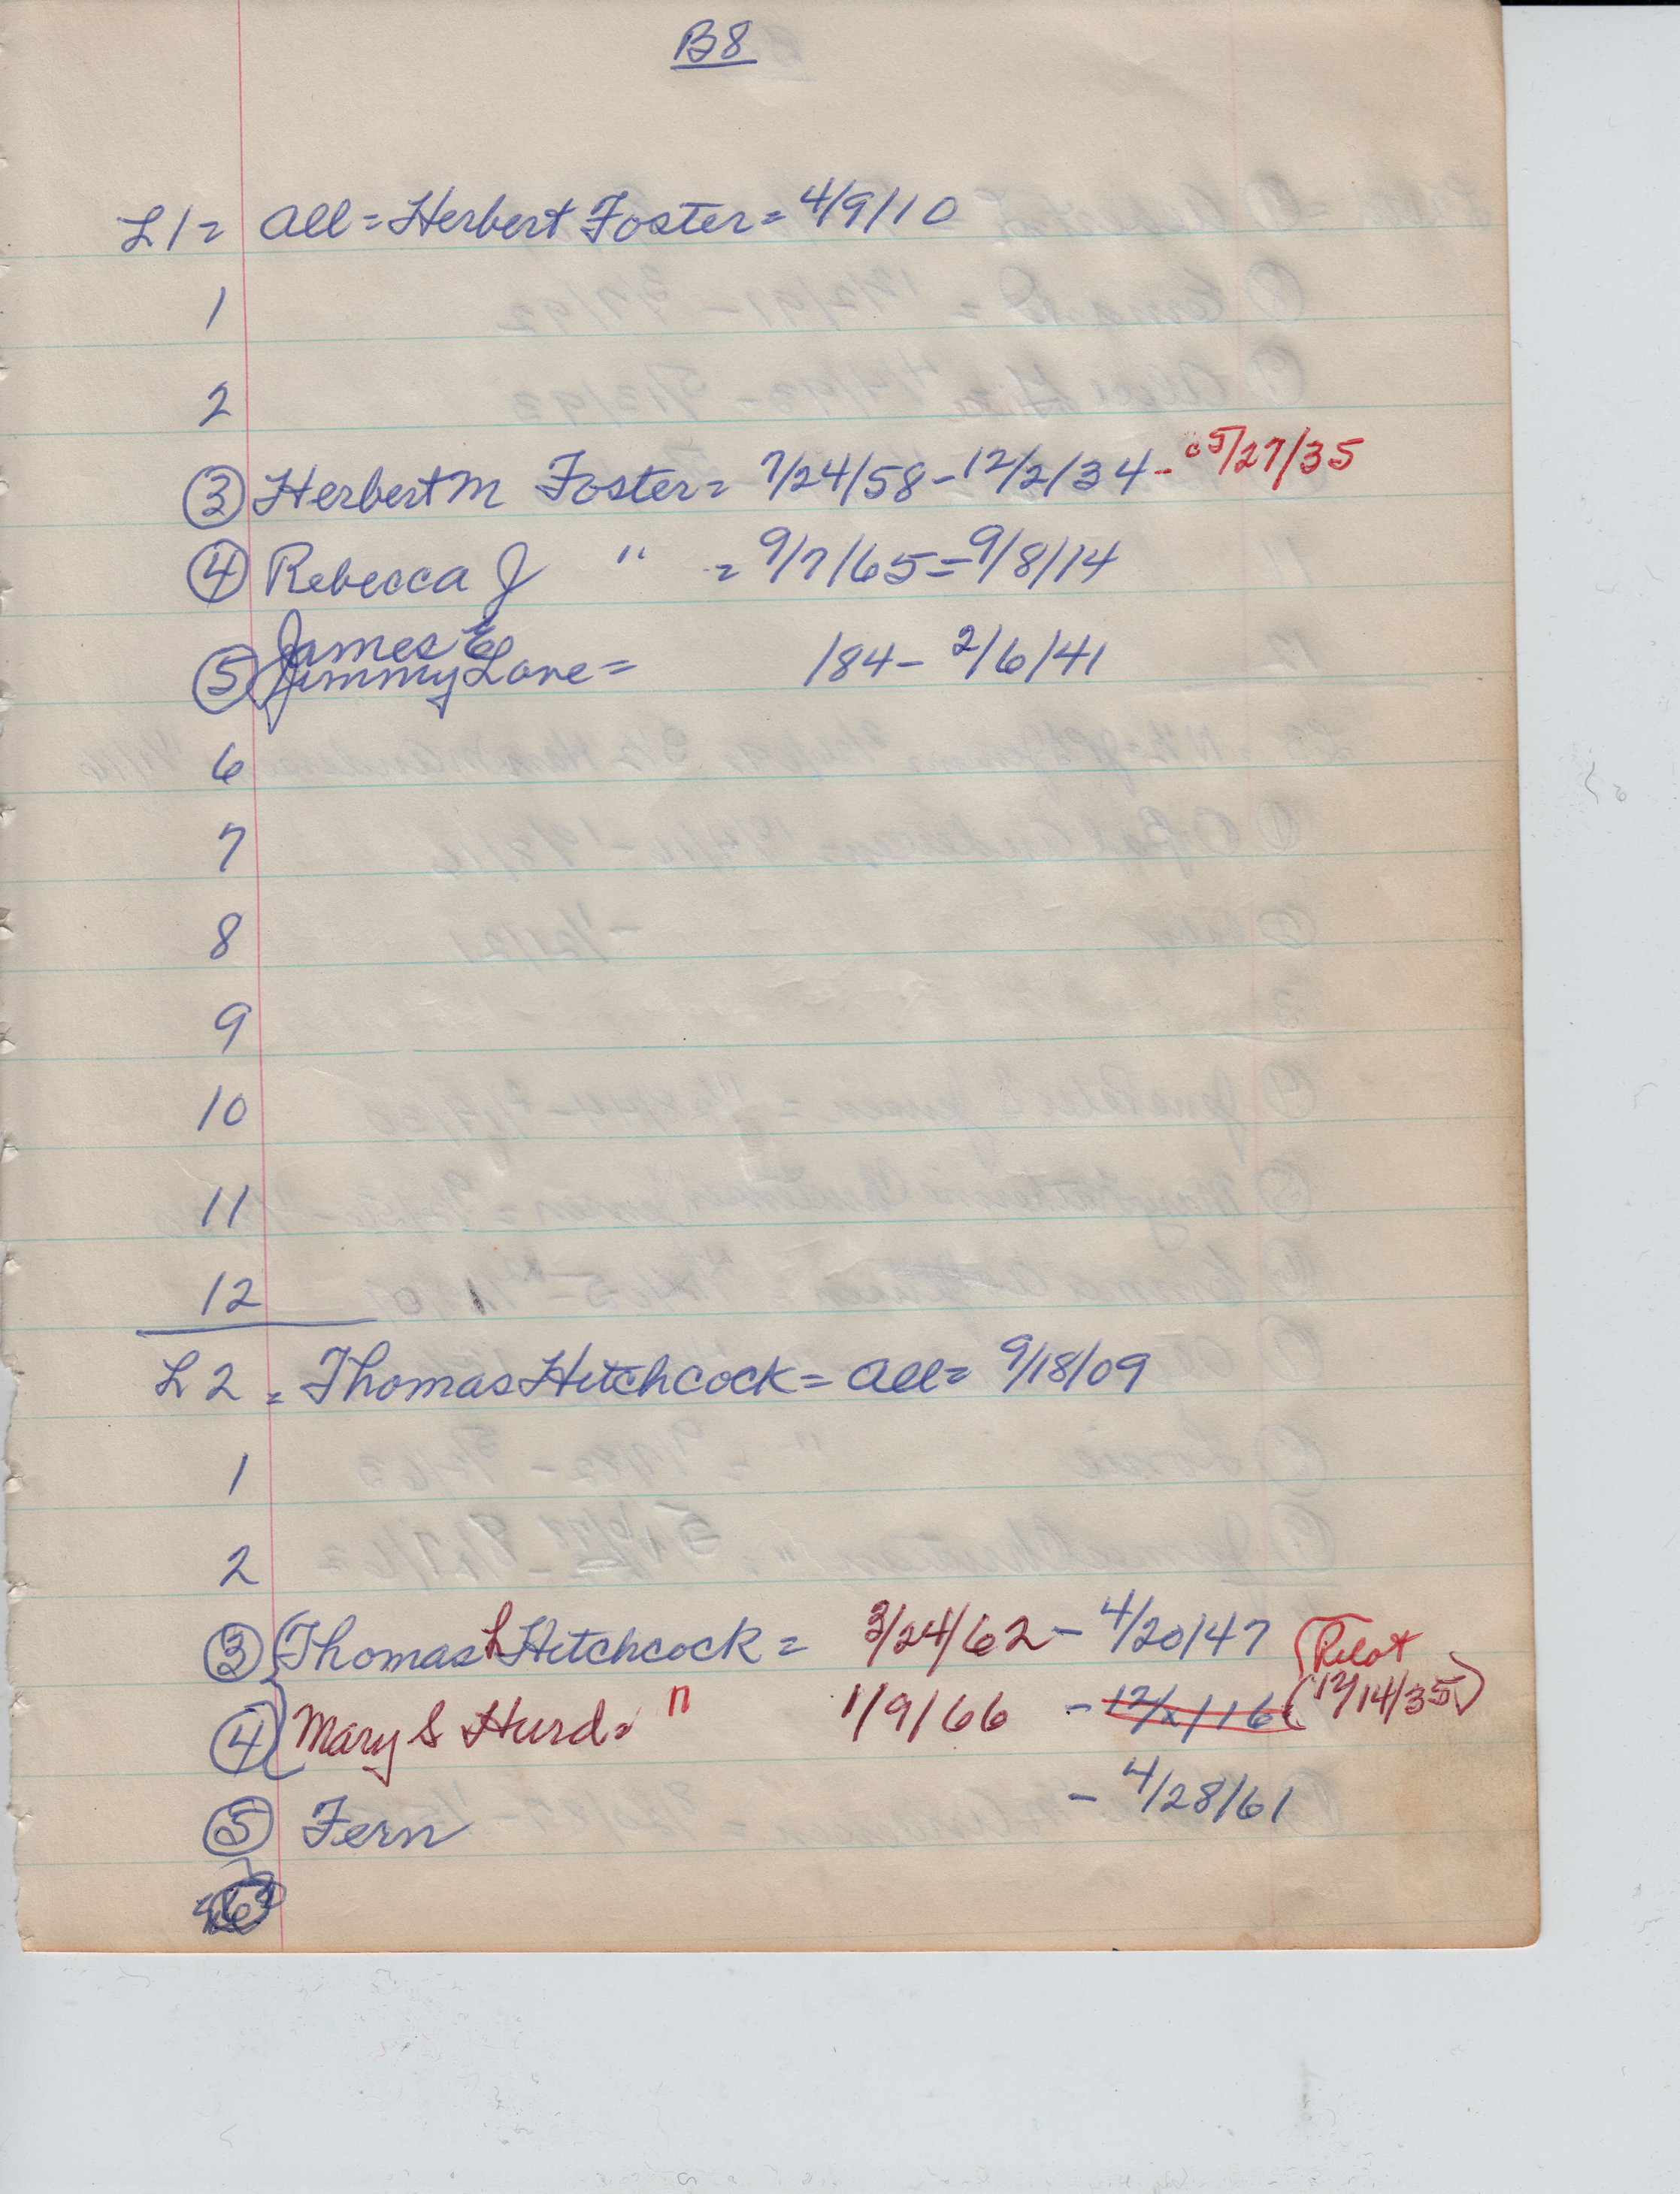 B8
L1 = All = Herbert Foster = 4/9/10
1
2
③ Herbert M Foster = 7/24/58 - 12/2/34 - 5/27/35
④ Rebecca J " = 9/7/65 = 9/8/14
James E
⑤ Jimmy Lane = /84 - 2/6/41
6
7
8
9
10
11
12
L2 = Thomas Hitchcock = All = 9/18/09
1
2
③ Thomas L Hitchcock = 3/24/62 - 4/20/47 (Pilot
④ Mary S Hurd = " 1/9/66 - 12/x/16 (12/14/35)
⑤ Fern - 4/28/61
6